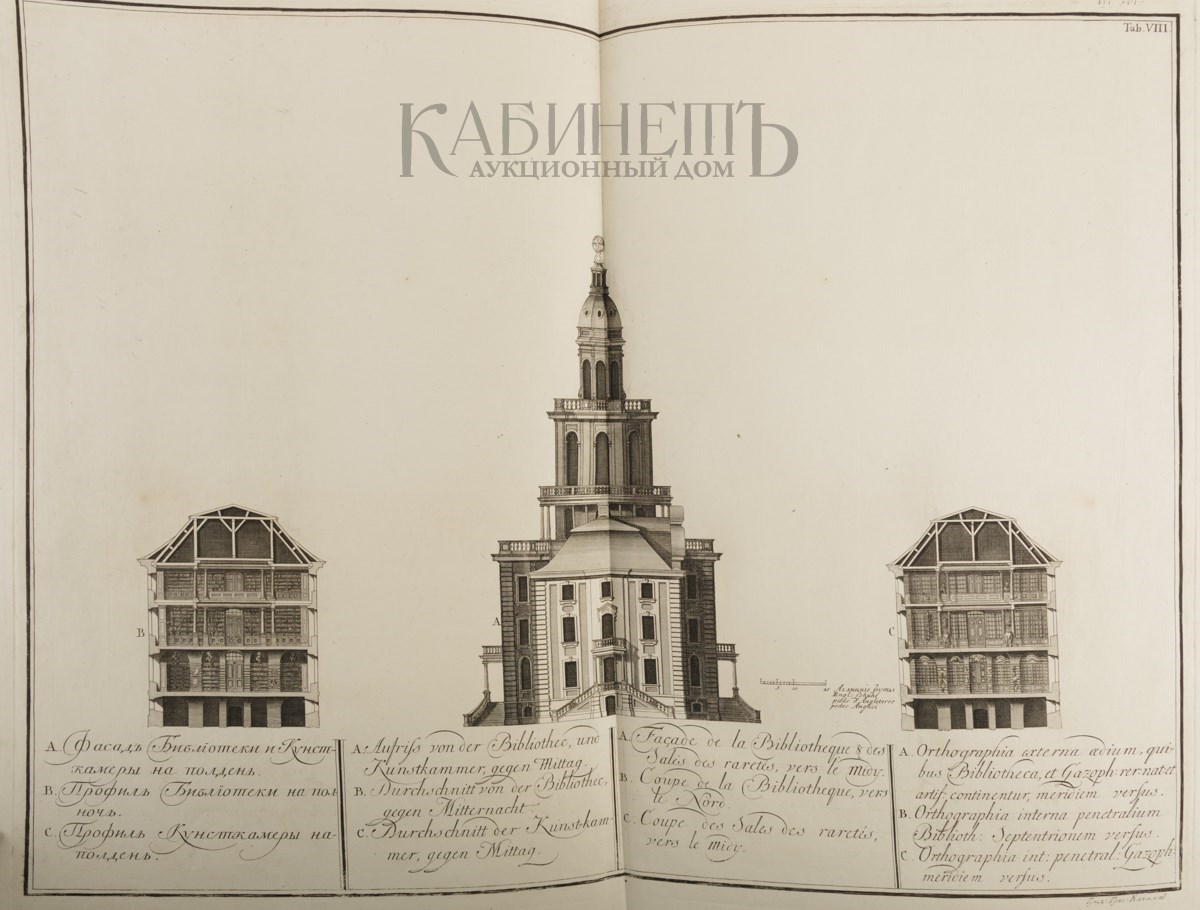 Tab. VIII.
КАБИНЕТЪ
АУКЦИОННЫЙ ДОМ
A
B
C
Engl. Schuhe
pieds d'Angleterre
pedes Anglici
A. Фасадъ Библіотеки и Кунст-
камеры на полдень.
B. Профиль Библіотеки на пол
ночь.
C. Профиль Кунсткамеры на-
полдень.
A. Aufriss von der Bibliothec, und
Kunstkammer, gegen Mittag.
B. Durchschnitt von der Bibliothec,
gegen Mitternacht.
C. Durchschnitt der Kunst-kam-
mer, gegen Mittag.
A. Façade de la Bibliotheque & des
Sales des raretés, vers le midy.
B. Coupe de la Bibliotheque, vers
le Nord.
C. Coupe des Sales des raretés,
vers le midy.
A. Orthographia externa ædium, qui-
bus Bibliotheca, et Gazoph: rer: nat: et
artif: continentur, meridiem versus.
B. Orthographia interna penetralium
Biblioth: Septentrionem versus.
C. Orthographia int: penetral: Gazoph:
meridiem versus.